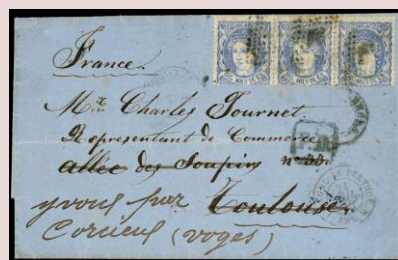 France.
Mr. Charles Tournet
Représentant de Commerce
allée des Soupirs n° 33.
Toulouse.
par
Corcieux (voges)
P.D.